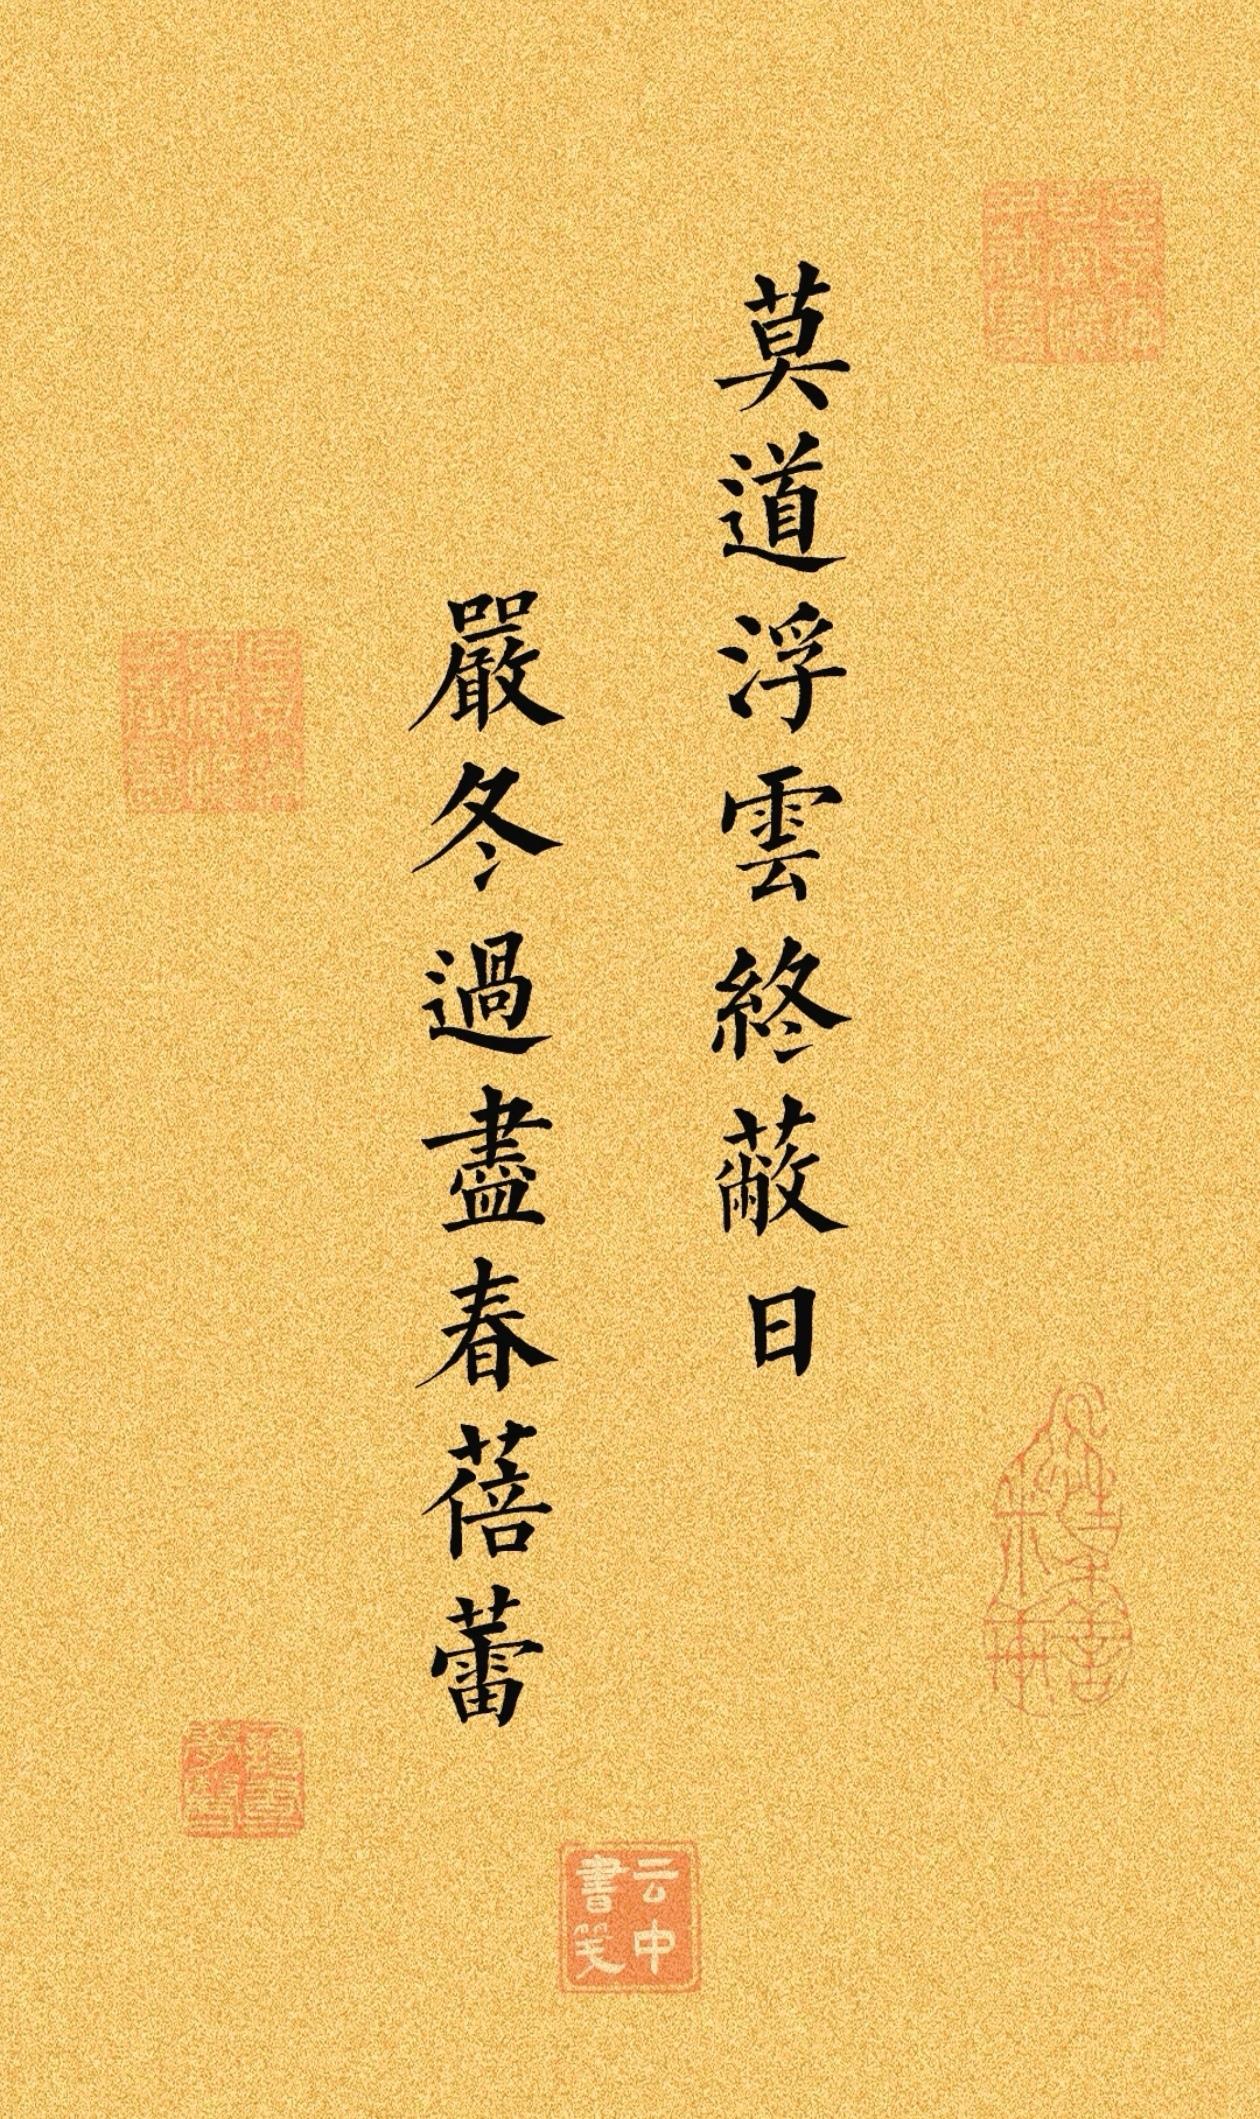 莫道浮雲終蔽日
嚴冬過盡春蓓蕾
云中
書笺